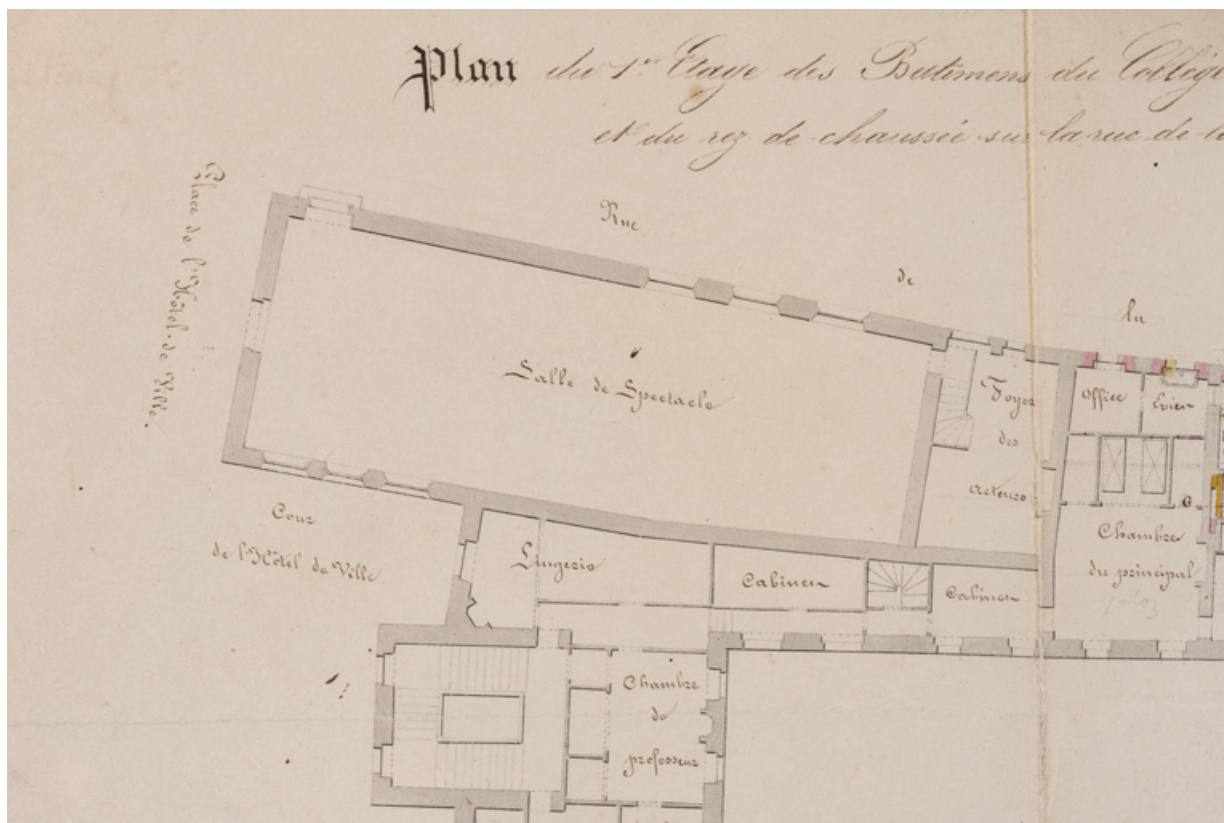 Plan du 1er Etage des Batimens du Collége
et du rez de chaussée sur la rue de la
Place de l'Hôtel-de-Ville.
Rue
de
la
Salle de Spectacle
Foyer
des
acteurs
Office
Evier
Cour
de l'Hôtel de Ville
Lingerie
Cabinet
Cabinet
G
Chambre
du principal
Chambre
de
professeur